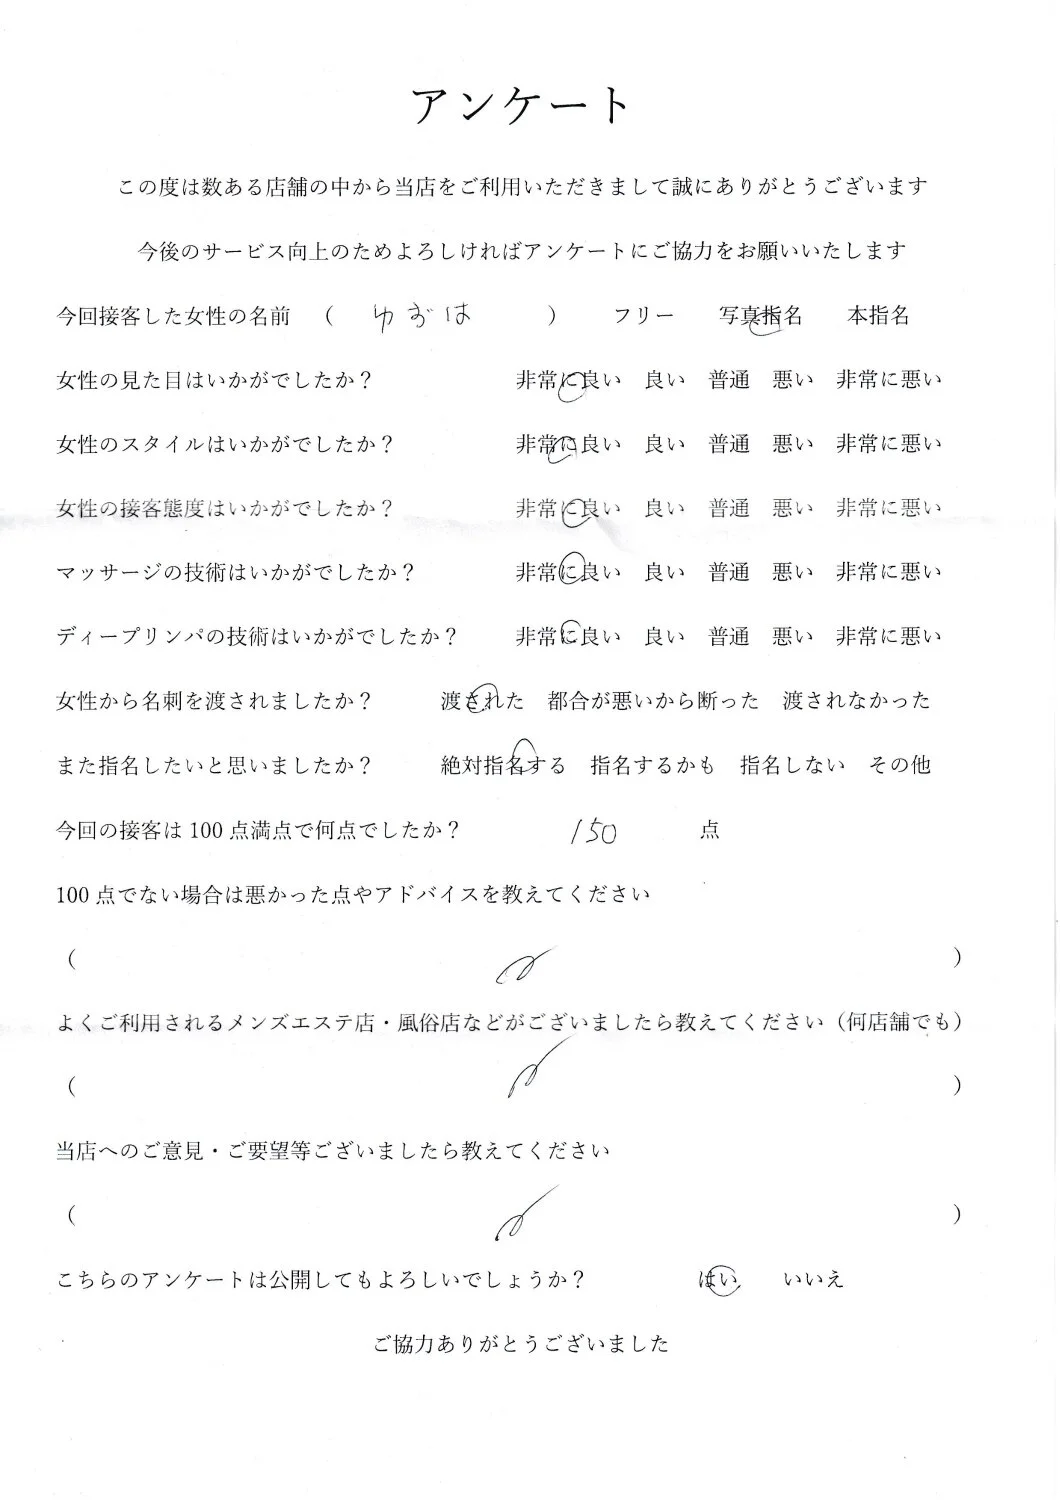 アンケート
この度は数ある店舗の中から当店をご利用いただきまして誠にありがとうございます
今後のサービス向上のためよろしければアンケートにご協力をお願いいたします
今回接客した女性の名前 （ ゆずは ） フリー 写真指名 本指名
女性の見た目はいかがでしたか？ 非常に良い 良い 普通 悪い 非常に悪い
女性のスタイルはいかがでしたか？ 非常に良い 良い 普通 悪い 非常に悪い
女性の接客態度はいかがでしたか？ 非常に良い 良い 普通 悪い 非常に悪い
マッサージの技術はいかがでしたか？ 非常に良い 良い 普通 悪い 非常に悪い
ディープリンパの技術はいかがでしたか？ 非常に良い 良い 普通 悪い 非常に悪い
女性から名刺を渡されましたか？ 渡された 都合が悪いから断った 渡されなかった
また指名したいと思いましたか？ 絶対指名する 指名するかも 指名しない その他
今回の接客は 100 点満点で何点でしたか？ 150 点
100 点でない場合は悪かった点やアドバイスを教えてください
（ ）
よくご利用されるメンズエステ店・風俗店などがございましたら教えてください（何店舗でも）
（ ）
当店へのご意見・ご要望等ございましたら教えてください
（ ）
こちらのアンケートは公開してもよろしいでしょうか？ はい いいえ
ご協力ありがとうございました